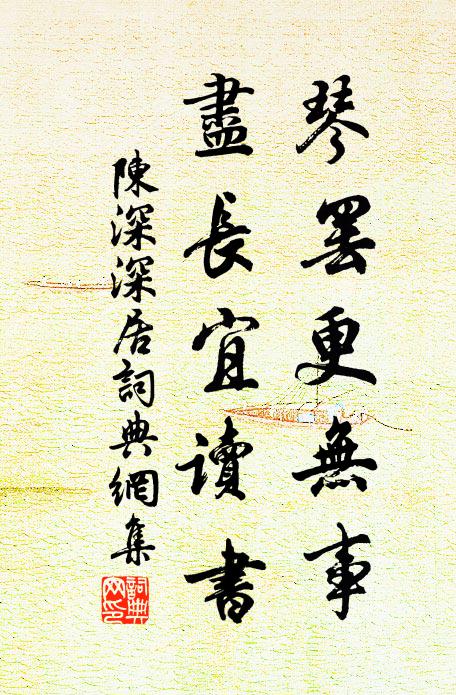 琴罢更無事
盡長宜讀書
陳深深居詞典網集
詞典
网印